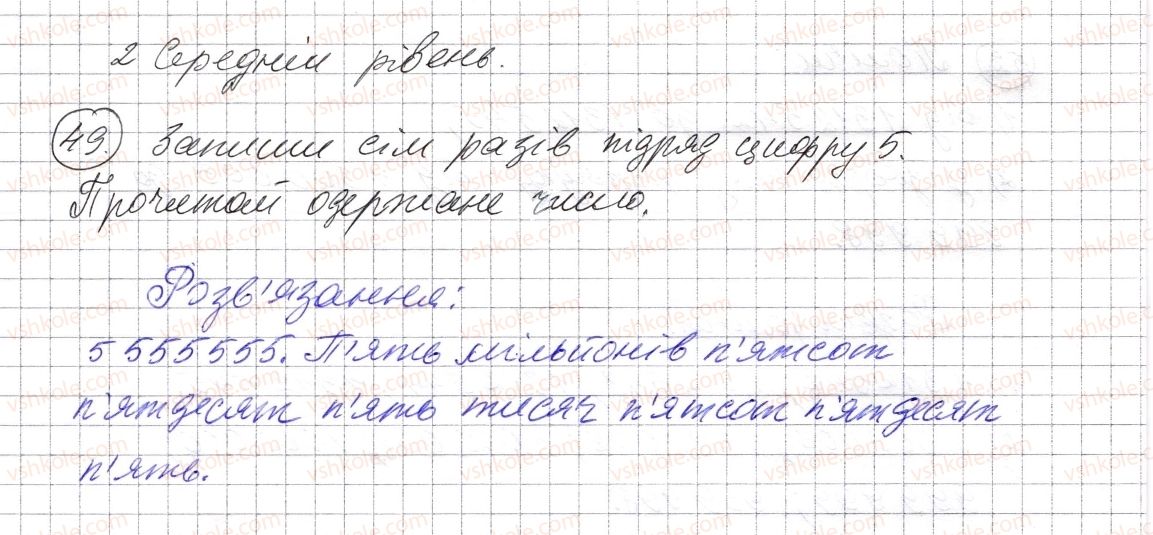 2 Середній рівень.
49. Запиши сім разів підряд цифру 5.
Прочитай одержане число.
Розв'язання:
5 555 555. П'ять мільйонів п'ятсот
п'ятдесят п'ять тисяч п'ятсот п'ятдесят
п'ять.